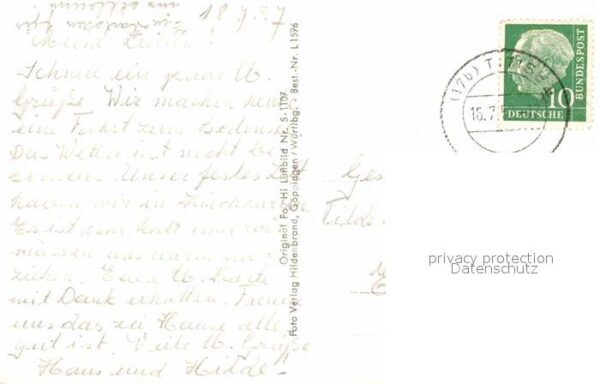 18.7.57
Meine Lieben!
Schnell ein paar lb.
Grüße. Wir machen heute
eine Fahrt zum Bodensee
Das Wetter ist nicht be
sonders. Unser festes
haben wir in Kirchzarten.
Es ist sehr kalt und wir
müssen uns warm an
ziehen. Eure lb. Karte
mit Dank erhalten. Freue
uns das zu Hause alles
gut ist. Viele lb. Grüße
Hans und Hilde
Original Fo-Hi Luftbild Nr. S-1107
Foto Verlag Hildenbrand, Göppingen/Württbg. - Best.-Nr. L 1596
Ges
Hilde
(17b) TITISEE
18.7.5
10
DEUTSCHE
BUNDESPOST
privacy protection
Datenschutz